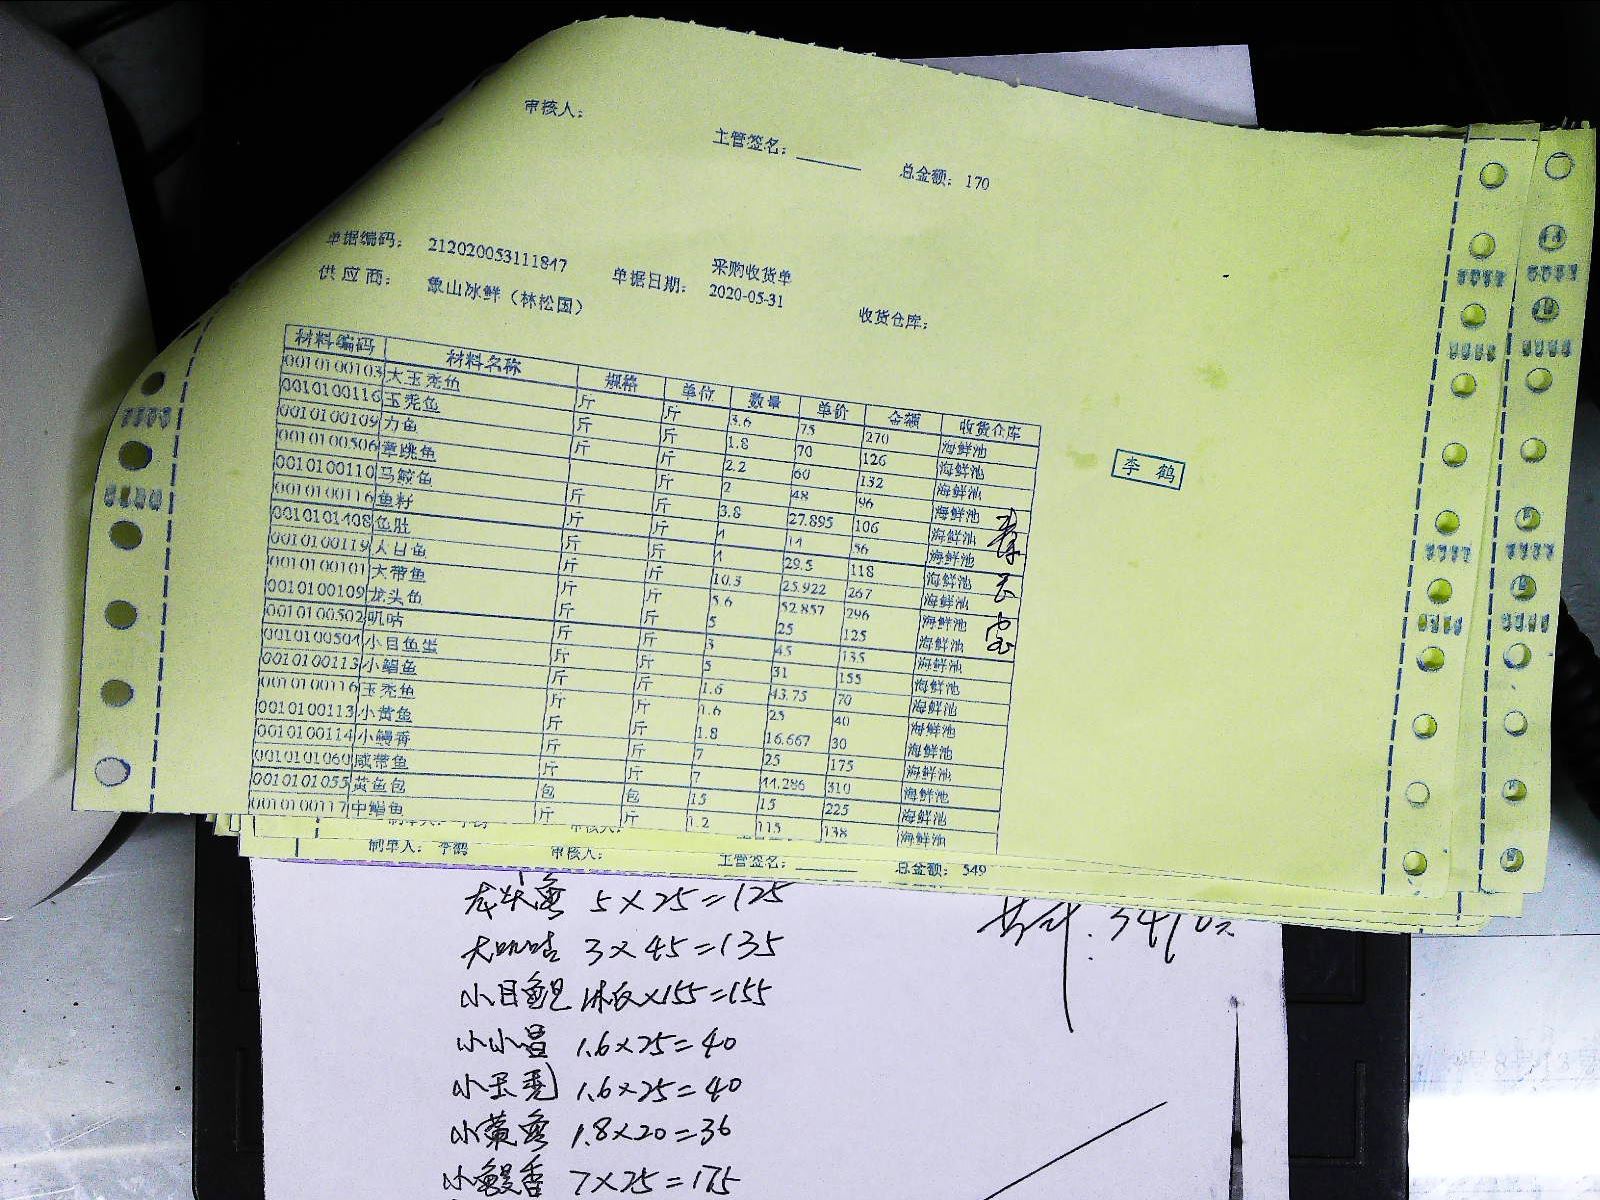 审核人:
主管签名: ______ 总金额: 170
采购收货单
单据编码: 212020053111847 单据日期: 2020-05-31 收货仓库:
供应商: 象山冰鲜(林松国)
材料编码 材料名称 规格 单位 数量 单价 金额 收货仓库
0010100103 大玉秃鱼 斤 斤 3.6 75 270 海鲜池
0010100116 玉秃鱼 斤 斤 1.8 70 126 海鲜池
0010100109 力鱼 斤 斤 2.2 60 132 海鲜池
0010100506 章跳鱼 斤 2 48 96 海鲜池
0010100110 马鲛鱼 斤 斤 3.8 27.895 106 海鲜池
0010100116 鱼籽 斤 斤 4 14 56 海鲜池
0010101408 鱼肚 斤 斤 4 29.5 118 海鲜池
0010100119 大目鱼 斤 斤 10.3 25.922 267 海鲜池
0010100101 大带鱼 斤 斤 5.6 52.857 296 海鲜池
0010100109 龙头鱼 斤 斤 5 25 125 海鲜池
0010100502 叽咕 斤 斤 3 45 135 海鲜池
0010100504 小目鱼蛋 斤 斤 5 31 155 海鲜池
0010100113 小鲳鱼 斤 斤 1.6 43.75 70 海鲜池
0010100116 玉秃鱼 斤 斤 1.6 25 40 海鲜池
0010100113 小黄鱼 斤 斤 1.8 16.667 30 海鲜池
0010100114 小鳗香 斤 斤 7 25 175 海鲜池
0010101060 咸带鱼 斤 斤 7 44.286 310 海鲜池
0010101055 黄鱼包 包 包 15 15 225 海鲜池
0010100117 中鲳鱼 斤 斤 1.2 115 138 海鲜池
李 鹤
制单人: 李鹤 审核人:
制单人: 李鹤 审核人: 主管签名: ______ 总金额: 549
龙头鱼 5×25=125
大叽咕 3×45=135
小目鱼旦 1冰衣×155=155
小小昌 1.6×25=40
小玉秃 1.6×25=40
小黄鱼 1.8×20=36
小鳗香 7×25=175
共计: 3410元